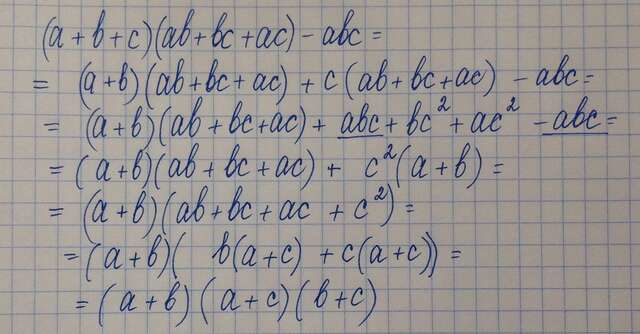 (a + b + c)(ab + bc + ac) - abc =
= (a + b)(ab + bc + ac) + c(ab + bc + ac) - abc =
= (a + b)(ab + bc + ac) + abc + bc² + ac² - abc =
= (a + b)(ab + bc + ac) + c²(a + b) =
= (a + b)(ab + bc + ac + c²) =
= (a + b)( b(a + c) + c(a + c)) =
= (a + b)(a + c)(b + c)